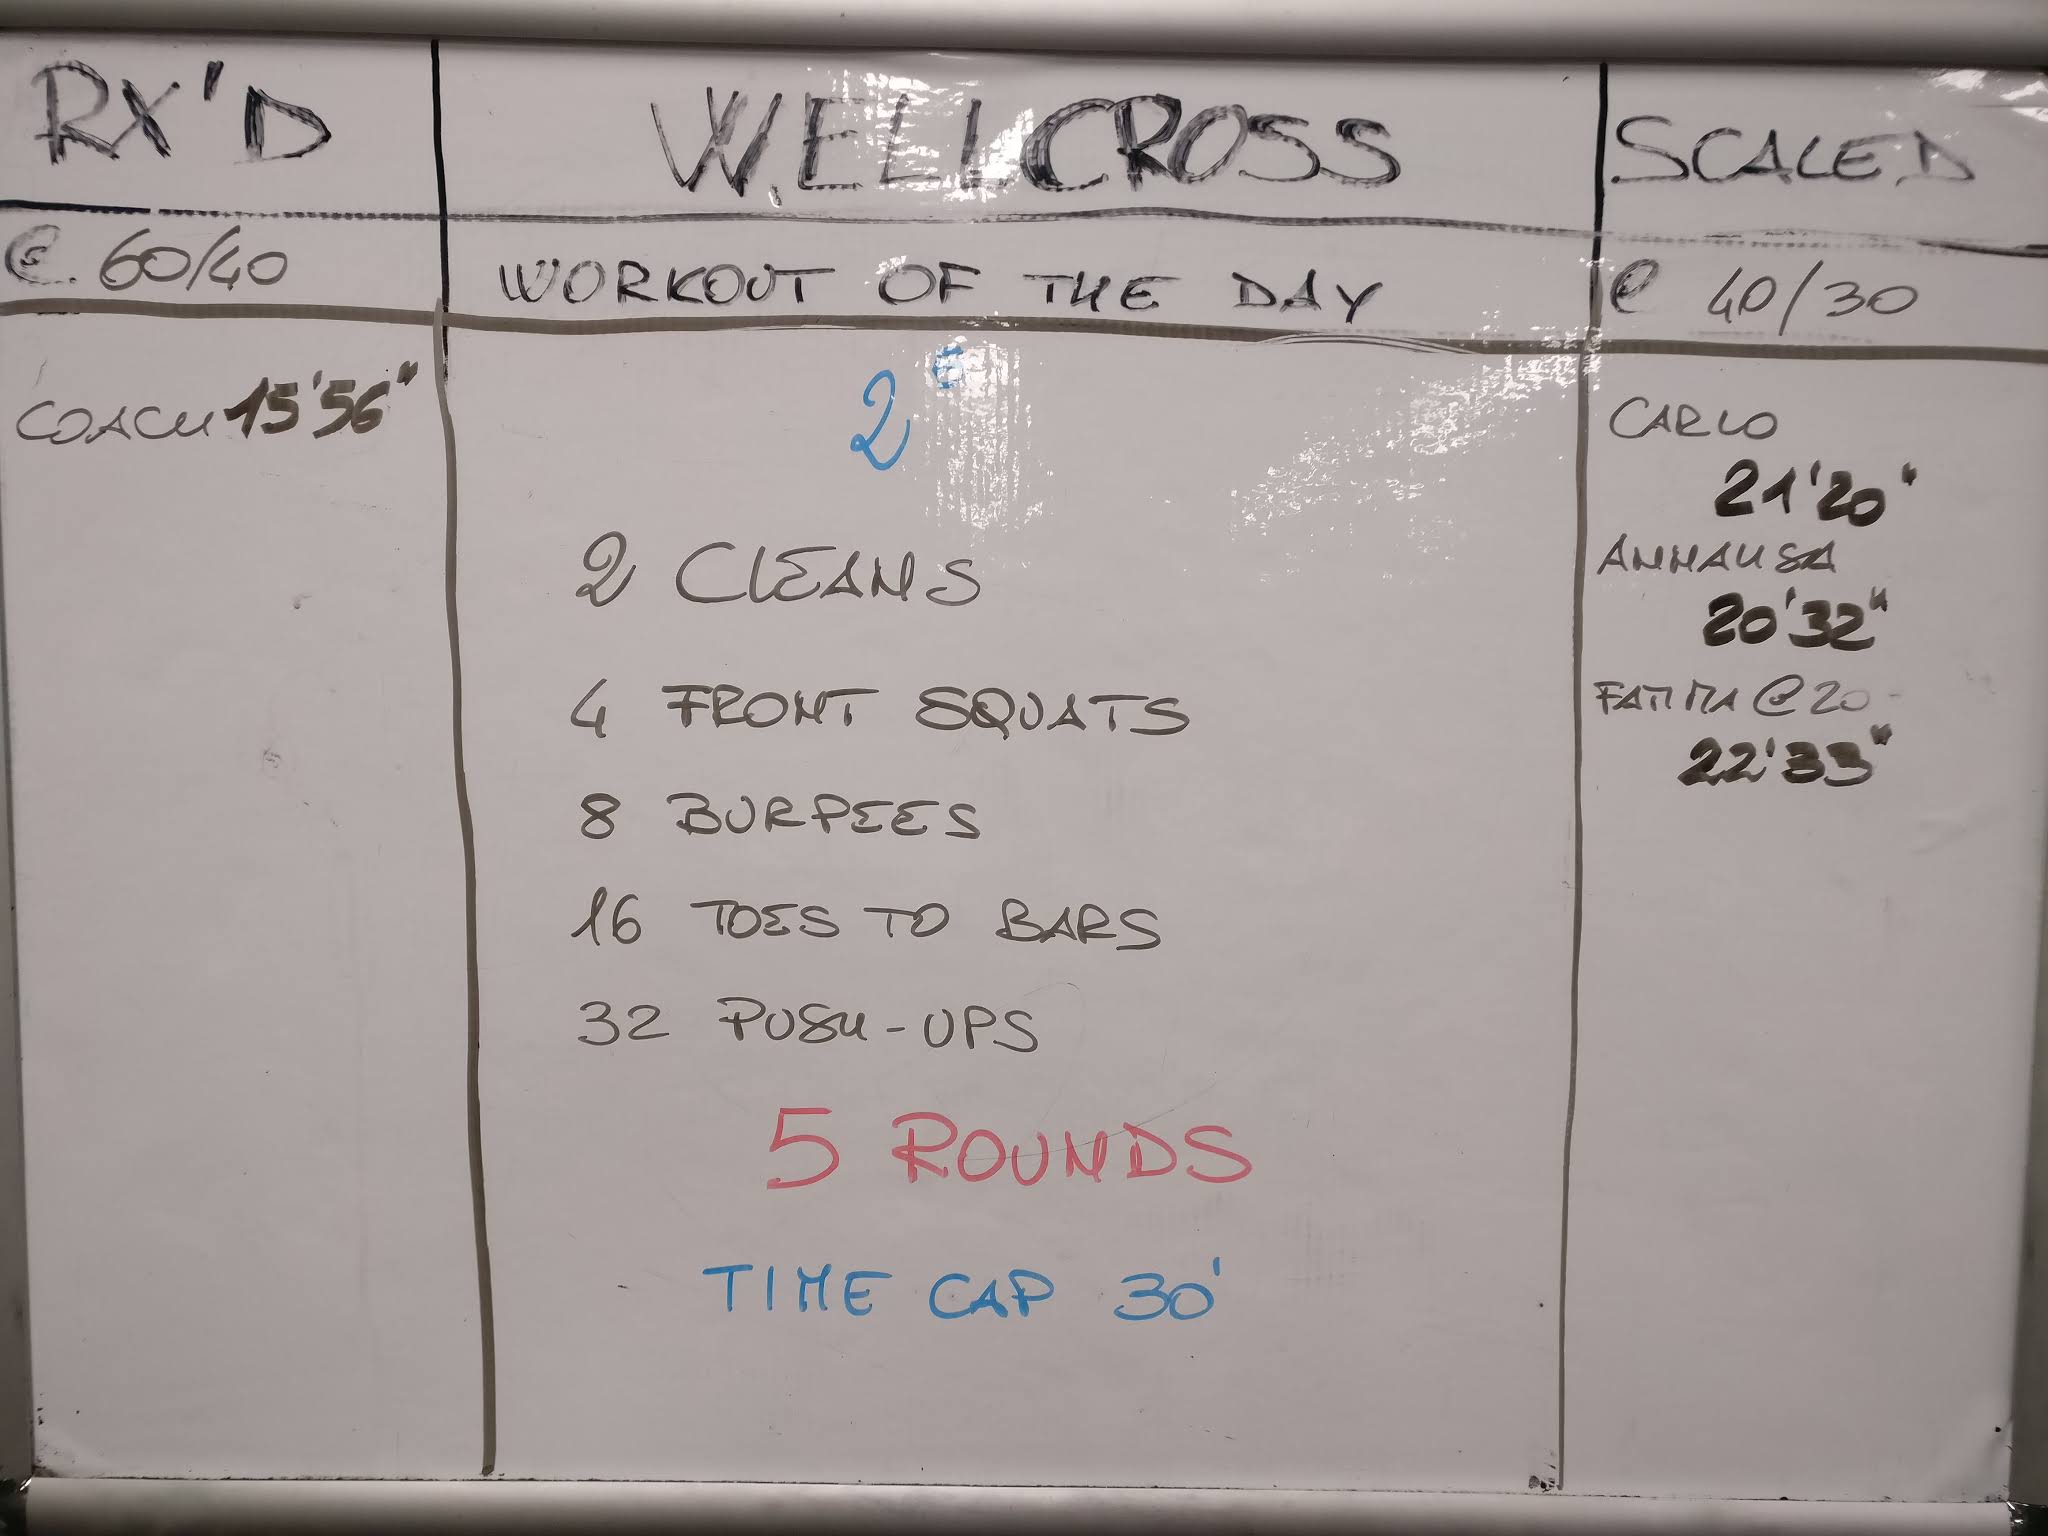 RX'D
@ 60/40
COACH 15'56"
WELLCROSS
WORKOUT OF THE DAY
2⁵
2 CLEANS
4 FRONT SQUATS
8 BURPEES
16 TOES TO BARS
32 PUSH-UPS
5 ROUNDS
TIME CAP 30'
SCALED
@ 40/30
CARLO
21'20"
ANNALISA
20'32"
FATIMA @ 20
22'33"